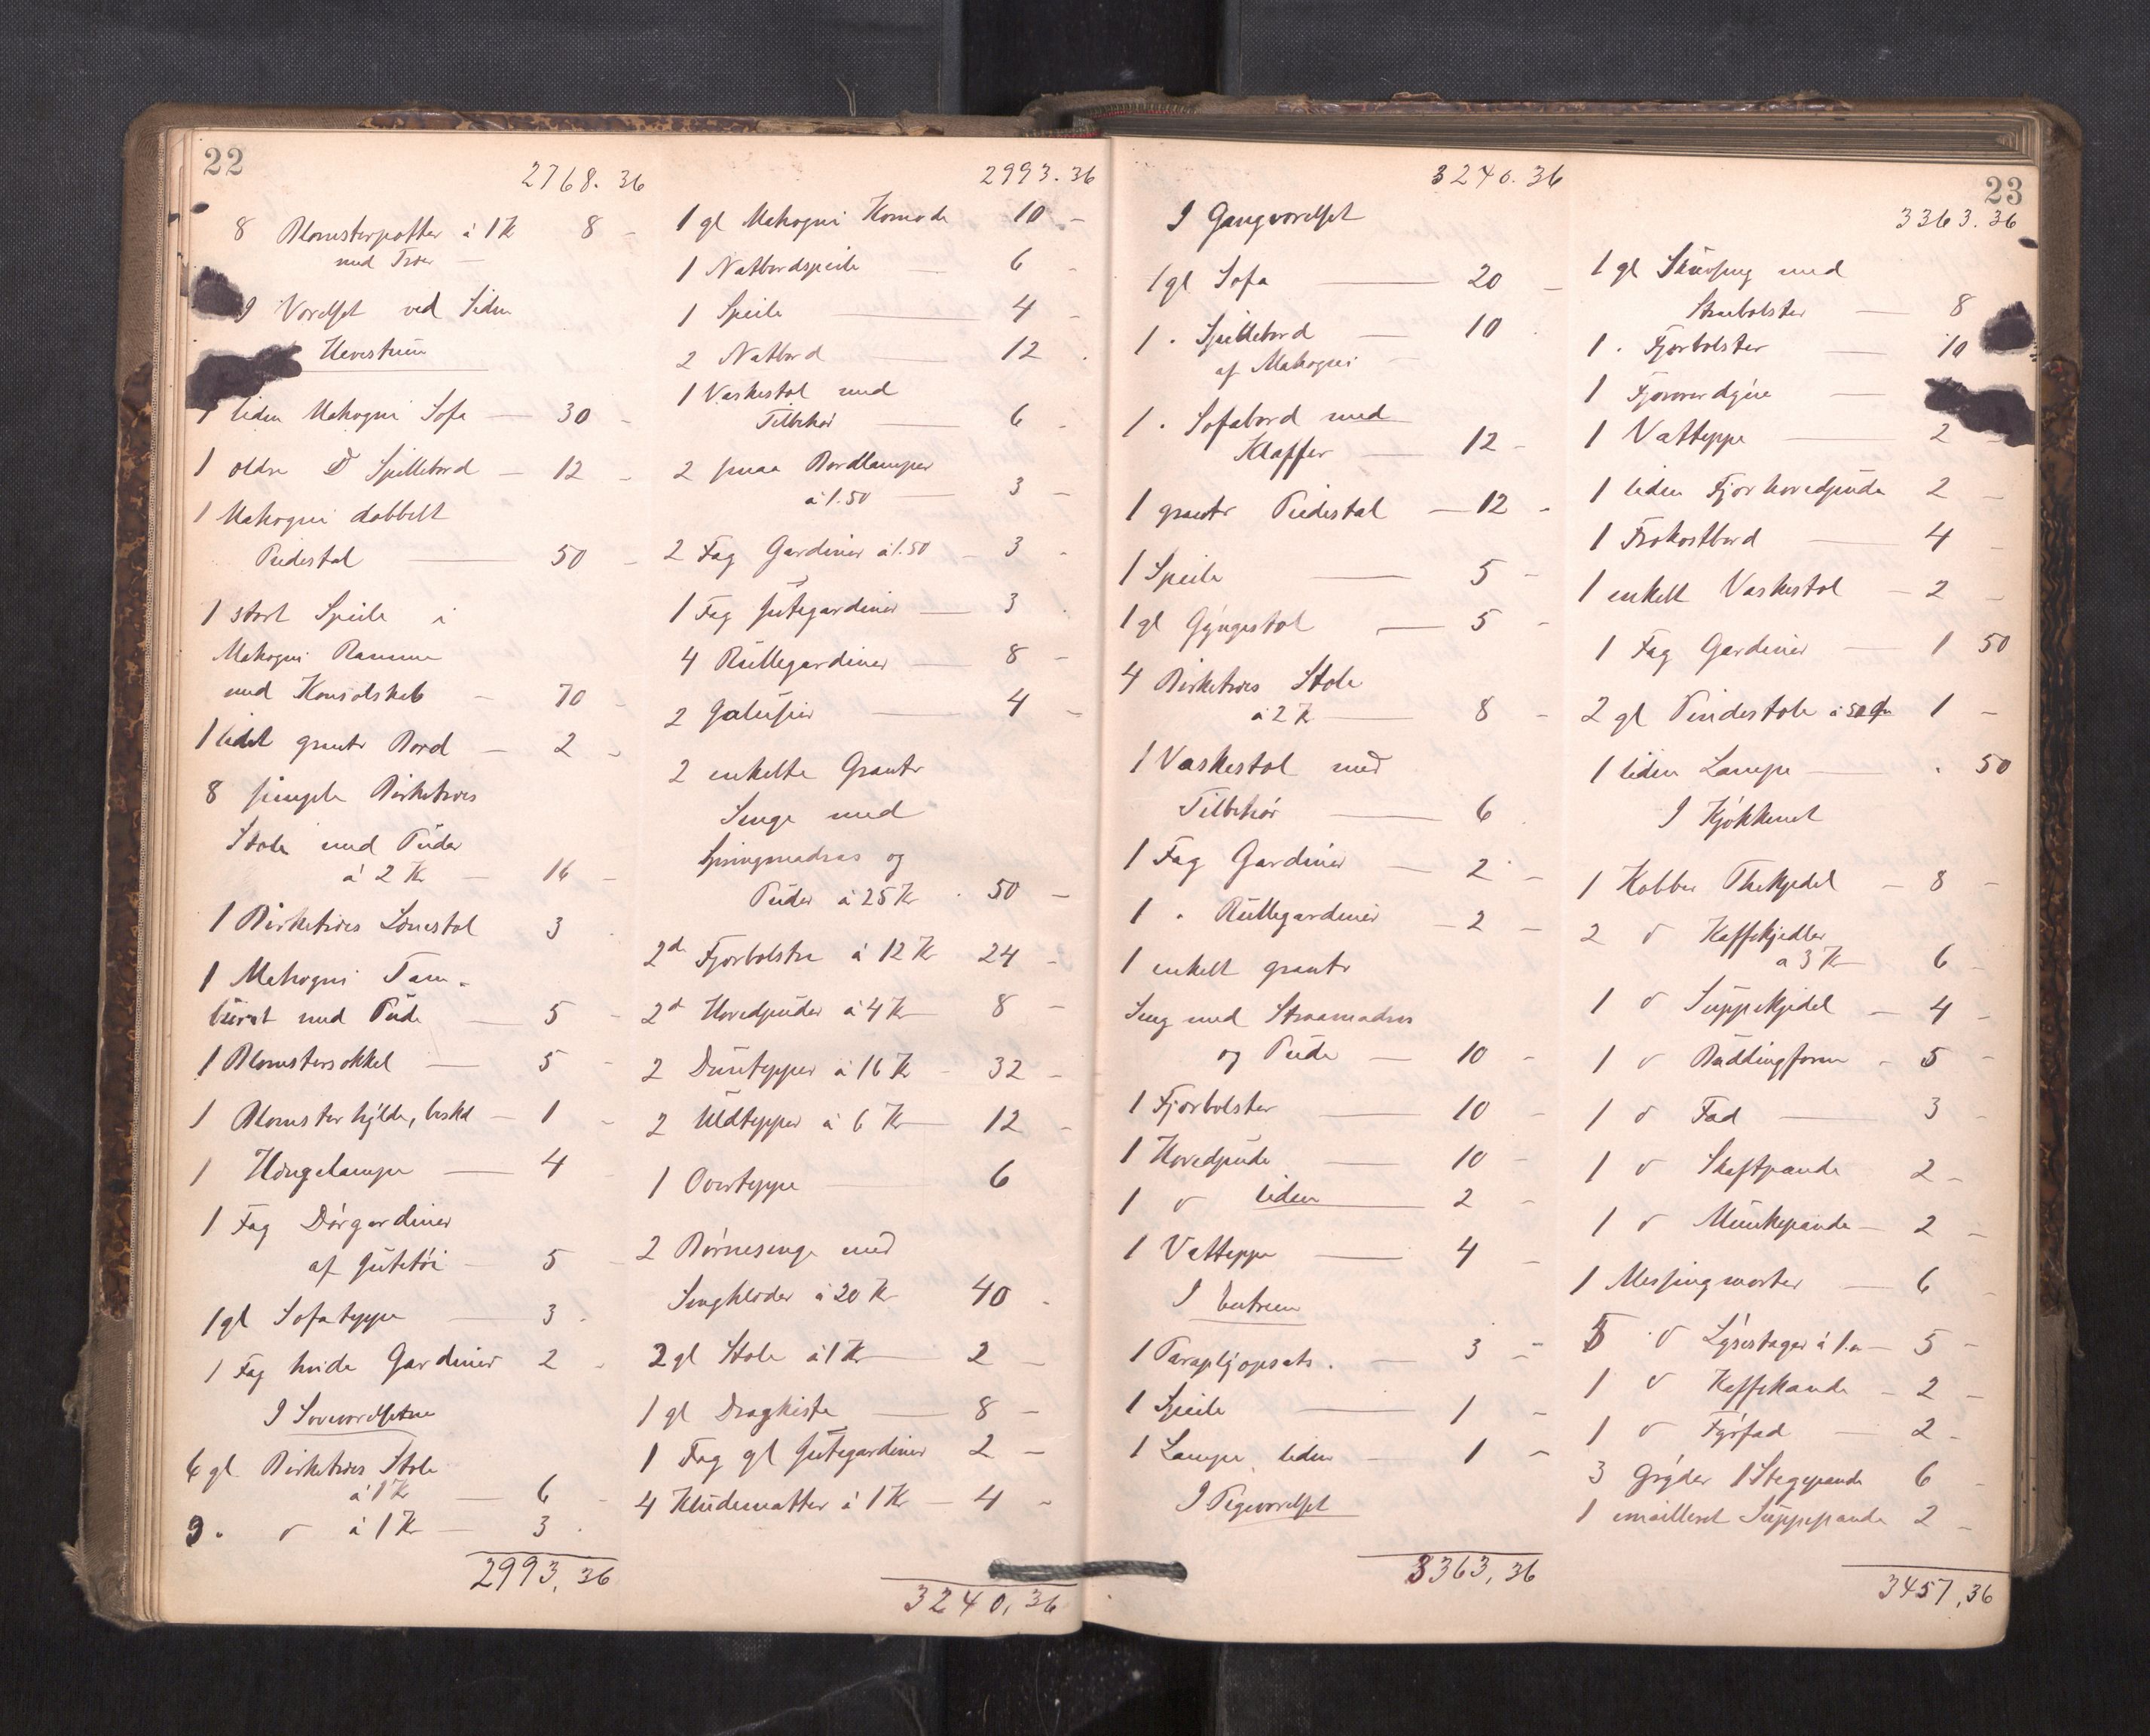 22
2768. 36
8 Blomsterpotter à 1 Kr 8 -
med Træer -
I Værelset ved Siden
Havestuen
1 liden Mahogni Sofa — 30 -
1 ældre D Spillebord — 12 -
1 Mahogni dobbelt
Piedestal — 50 -
1 stort Speile i
Mahogni Ramme
med Konsolskab - 70 -
1 lidet grantr Bord - 2 -
8 simple Birketræs
Stole med Puder
à 2 Kr - 16 -
1 Birketræs Lænestol 3
1 Mahogni Tam-
buret med Pude — 5 -
1 Blomstersokkel — 5 -
1 Blomsterhylde, beskd — 1 -
1 Hængelampe — 4 -
1 Fag Dørgardiner
af Jutetøi - 5 -
1 gl Sofateppe — 3 -
1 Fag hvide Gardiner 2 -
I Soveværelserne
6 gl. Birketræs Stole
à 1 Kr — 6 -
3 . d à 1 Kr — 3 .
2993, 36
2993. 36
1 gl Mahogni Komode 10 -
1 Natbordspeile — 6 -
1 Speile — 4 -
2 Natbord — 12 .
1 Vaskestol med
Tilbehør — 6 -
2 smaa Bordlamper
à 1.50 — 3 -
2 Fag Gardiner à 1.50 - 3 -
1 Fag Jutegardiner — 3 .
4 Rullegardiner — 8 -
2 Jalusier — 4 -
2 enkelte Grantr
Senge med
Springmadras og
Puder à 25 Kr . 50 -
2 d Fjærbolstre à 12 Kr 24 -
2 d Hovedpuder à 4 Kr 8 -
2 Duntepper à 16 Kr - 32 -
2 Uldtepper à 6 Kr — 12 -
1 Overteppe — 6
2 Børnesenge med
Sengklæder à 20 Kr 40 -
2 gl Stole à 1 Kr — 2 -
1 gl Dragkiste — 8 -
1 Fag gl Jutegardiner 2 -
4 Kludematter à 1 Kr — 4 -
3240, 36
3240. 36
I Gangværelset
1 gl Sofa — 20 -
1 . Spillebord — 10 .
af Mahogni -
1 . Sofabord med
Klaffer — 12 -
1 grantr Piedestal — 12 -
1 Speile — 5 -
1 gl Gyngestol — 5 -
4 Birketræs Stole
à 2 Kr — 8 -
1 Vaskestol med
Tilbehør — 6 .
1 Fag Gardiner — 2 -
1 . Rullegardiner — 2 -
1 enkelt grantr
Seng med Straamadras
og Pude — 10 -
1 Fjærbolster — 10 -
1 Hovedpude — 10 -
1 d liden — 2 -
1 Vatteppe — 4 -
I Entreen
1 Paraplyopsats. — 3 -
1 Speile — 1 -
1 Lampe liden - 1 -
I Pigeværelset
3363, 36
23
3363. 36
1 gl Skuvseng med
Straabolster — 8
1 . Fjærbolster — 10
1 Fjæroverdyne —
1 Vatteppe — 2 -
1 liden Fjærhovedpude 2 -
1 Frokostbord — 4 -
1 enkelt Vaskestol - 2 -
1 Fag Gardiner — 1 50
2 gl Pindestole à 50 Ør 1 -
1 liden Lampe — . 50
I Kjøkkenet
1 Kobber Thekjedel - 8 -
2 d Kaffekjedler
a 3 Kr 6 -
1 d Suppekjedel — 4 -
1 d Buddingform - 5 -
1 d Fad — 3 -
1 d Skaftpande 2 -
1 d Munkepande — 2 -
1 Messingmorter — 6 -
5 . d Lysestager à 1.- — 5 -
1 d Kaffekande - 2 -
1 d Fyrfad — 2 -
3 Gryder 1 Stegepande 6 -
1 emailleret Suppepande 2 -
3457, 36